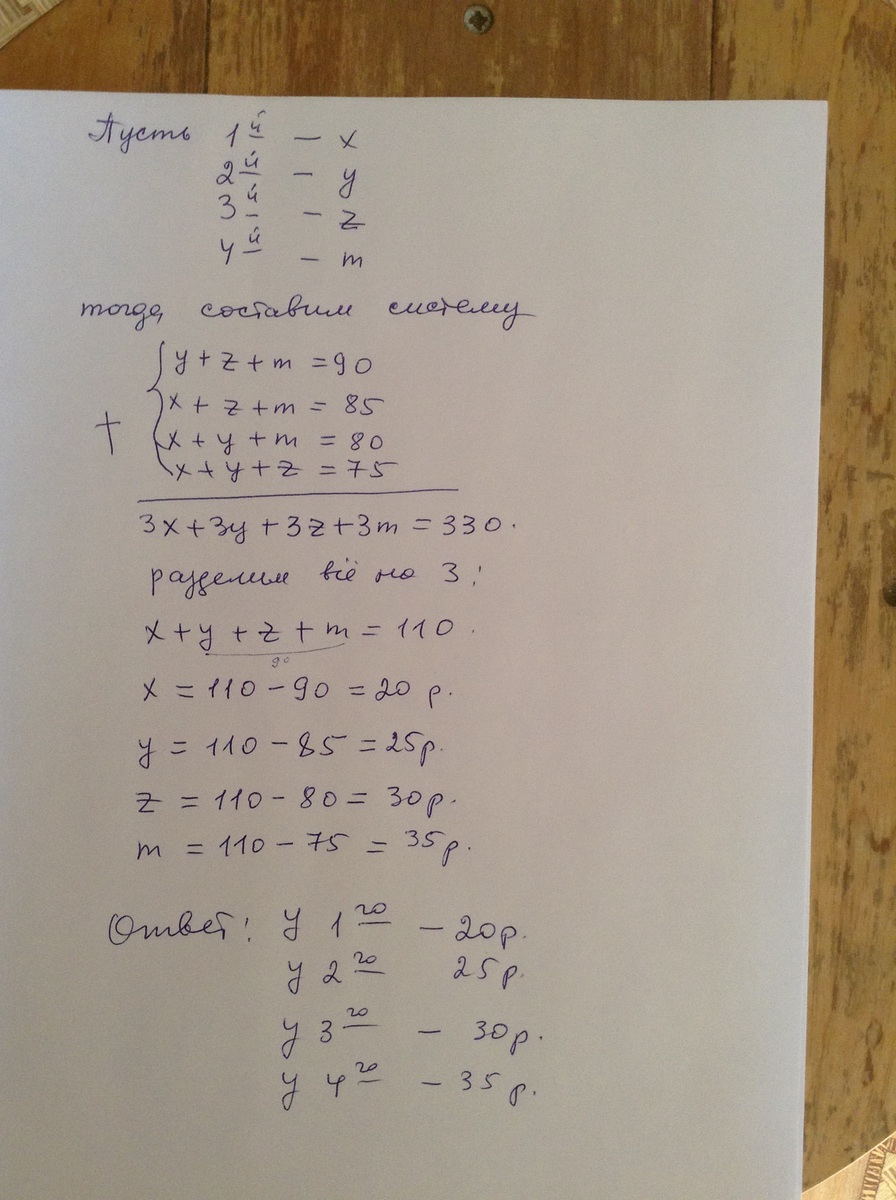 Пусть 1й – x
2й – y
3й – z
4й – m
тогда составим систему
y + z + m = 90
x + z + m = 85
+
x + y + m = 80
x + y + z = 75
3x + 3y + 3z + 3m = 330.
разделим всё на 3:
x + y + z + m = 110.
90
x = 110 – 90 = 20 р.
y = 110 – 85 = 25р.
z = 110 – 80 = 30р.
m = 110 – 75 = 35р.
Ответ: У 1го – 20р.
У 2го 25р.
У 3го – 30р.
У 4го – 35р.